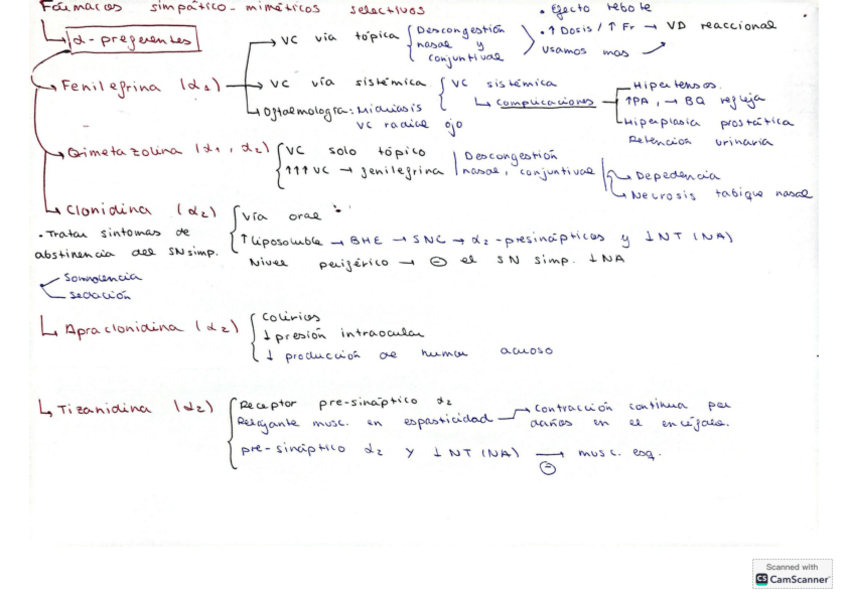 Fármacos simpático-miméticos selectivos
α-preferentes
VC vía tópica
Descongestión nasal y conjuntival
• Efecto rebote
• ↑ Dosis / ↑ Fr → VD reaccional
Usamos mas
Fenilefrina (α1)
VC vía sistémica
VC sistémica
Complicaciones
Hipertensos.
↑PA, → BQ refleja
Hiperplasia prostática
Retención urinaria
Oftalmología: Midriasis
VC radial ojo
Oximetazolina (α1, α2)
VC solo tópico
↑↑↑ VC → fenilefrina
Descongestión
nasal, conjuntival
Depedencia
Necrosis tabique nasal
Clonidina (α2)
• Tratar síntomas de
abstinencia del SN simp.
Somnolencia
sedación
Vía oral
↑ liposoluble → BHE → SNC → α2-presinápticos y ↓ NT (NA)
Nivel periférico → ⊖ el SN simp. ↓NA
Apraclonidina (α2)
Colirios
↓ presión intraocular
↓ producción de humor acuoso
Tizanidina (α2)
Receptor pre-sináptico α2
Relajante musc. en espasticidad
Contracción continua por
daños en el encéfalo.
pre-sináptico α2 y ↓ NT (NA) → musc. esq.
⊖
Scanned with
CS CamScanner